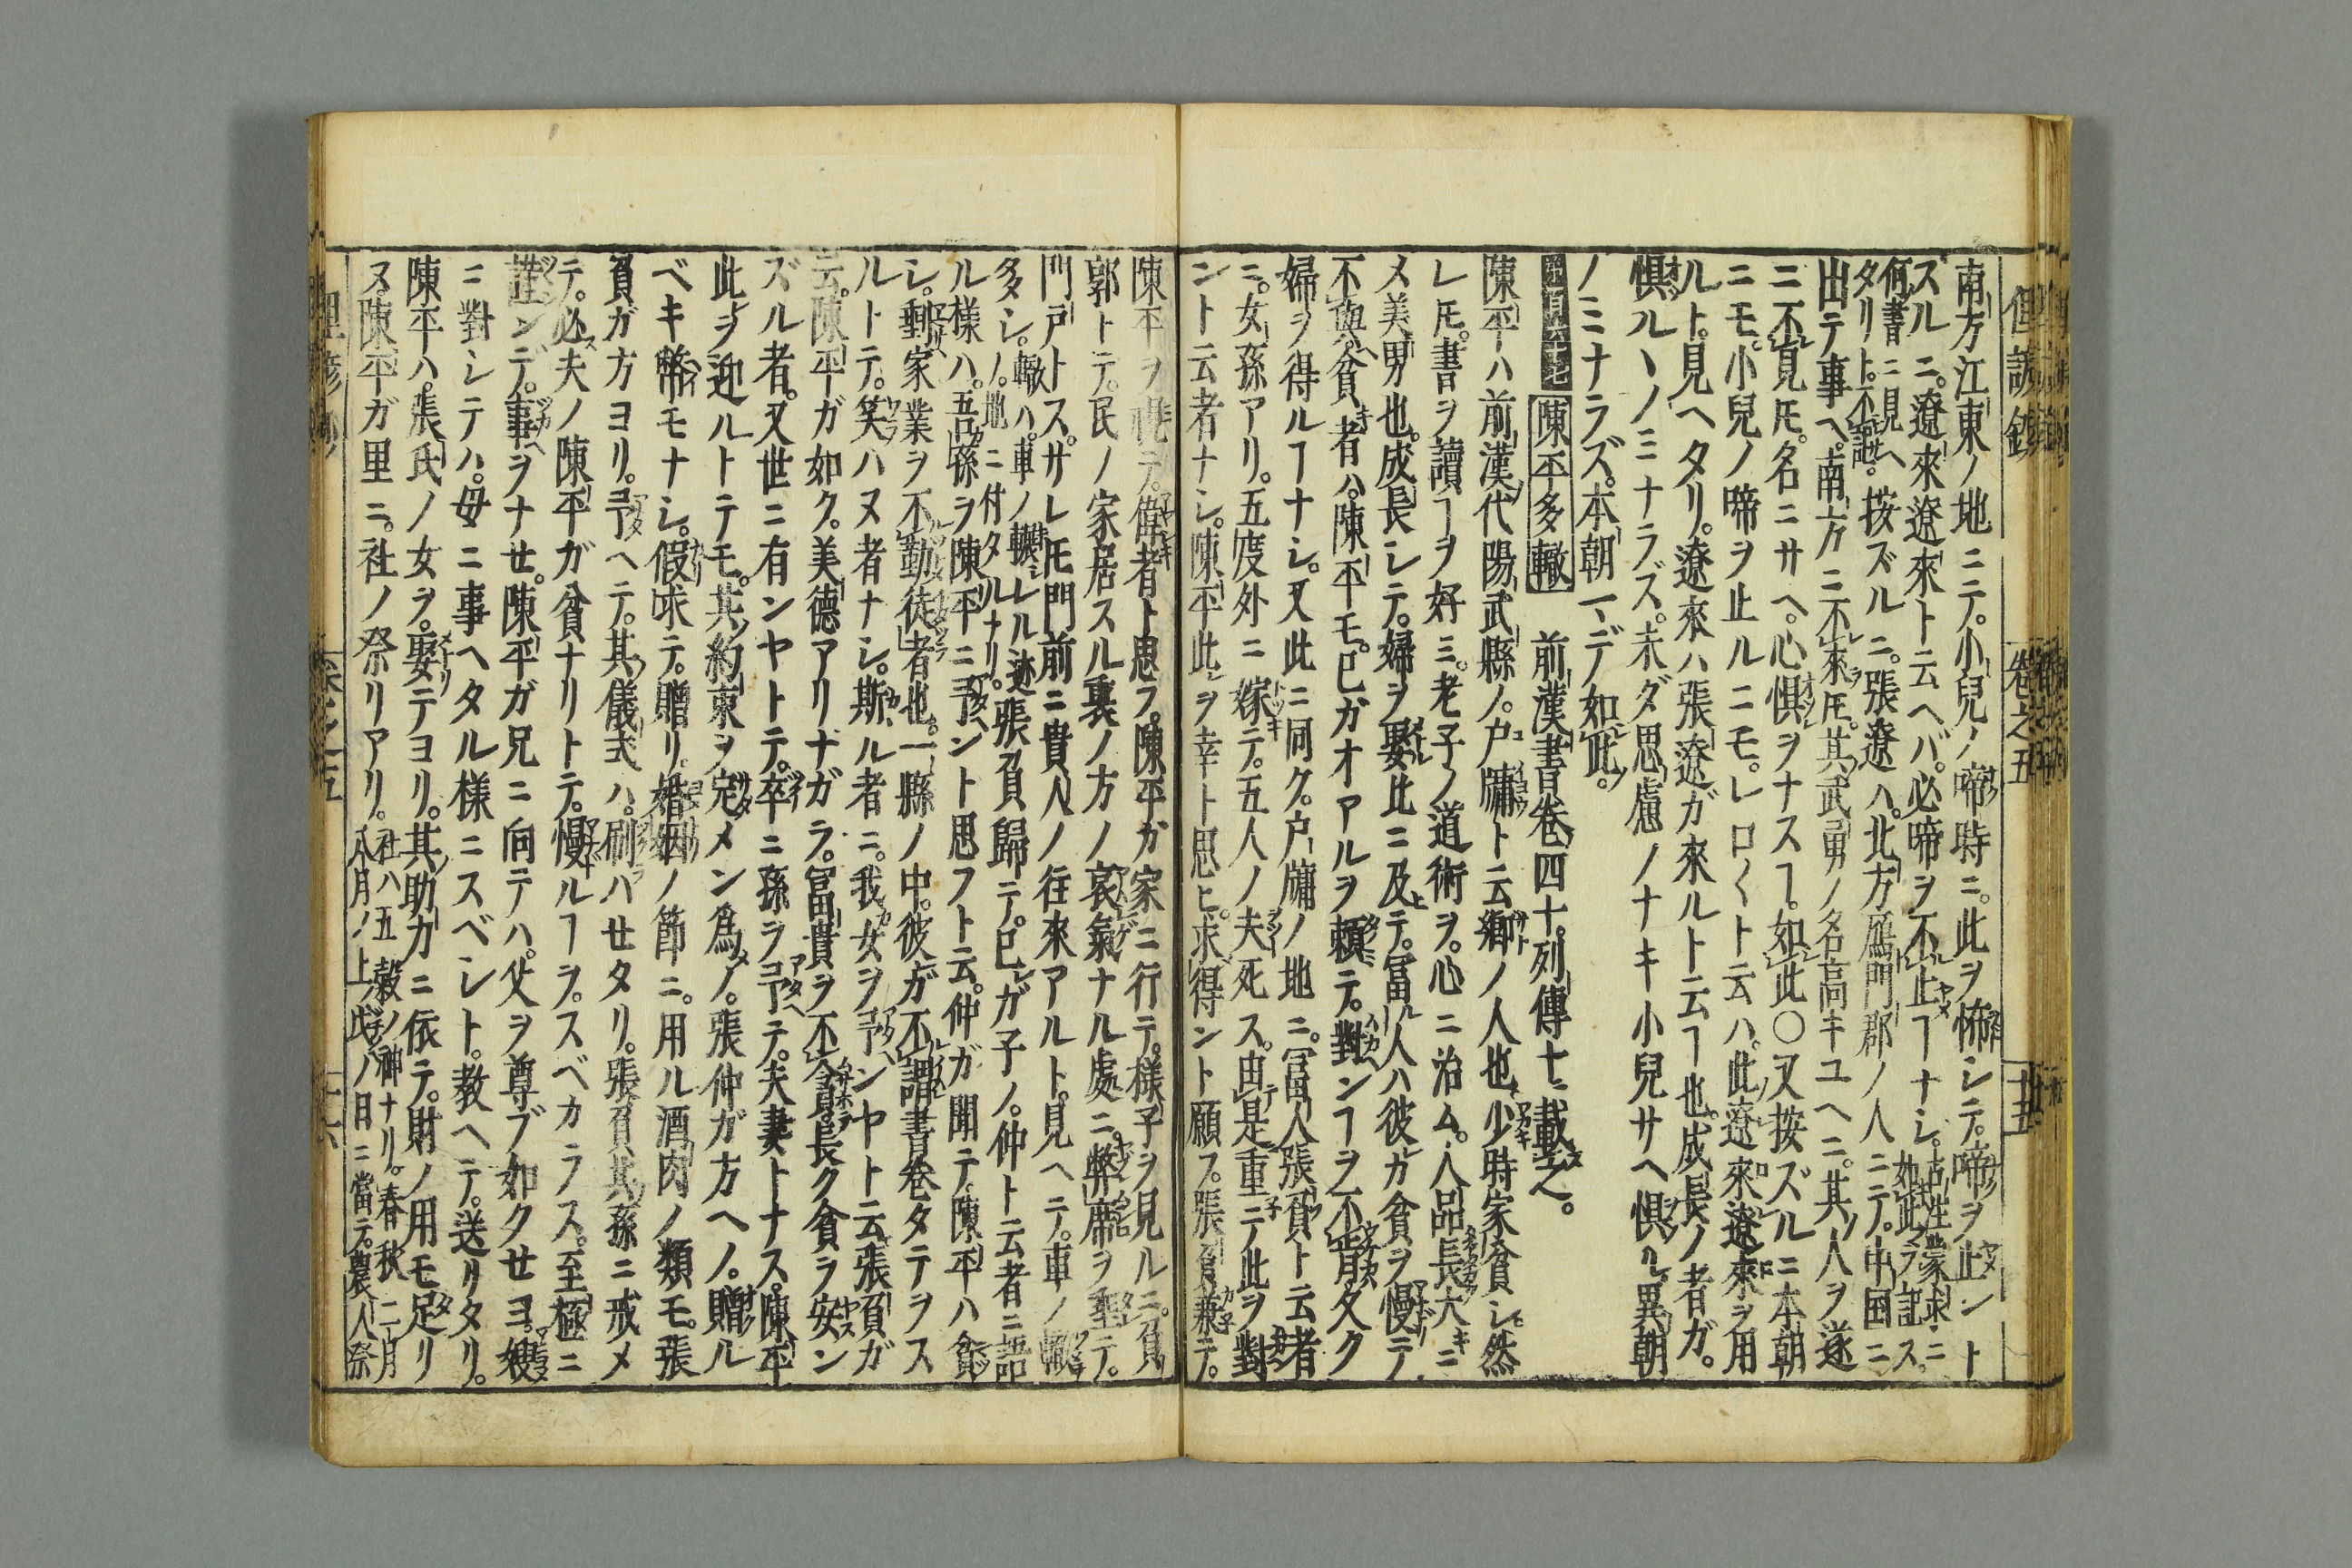 南方江東ノ地ニテ。小兒ノ啼時ニ。此ヲ怖シテ。啼ヲ止ント
スルニ。遼來遼來ト云ヘバ。必啼ヲ不止ヿナシ。古注蒙求ニ如此ヲ記ス。
何書ニ見ヘタリト。不記。按ズルニ。張遼ハ。北方鴈門郡ノ人ニテ。中国ニ
出テ事ヘ。南方ニ不來𪜈。其武勇ノ名高キユヘニ。其人ヲ遂
ニ不見𪜈。名ニサヘ。心惧ヲナスヿ。如此〇又按ズルニ本朝
ニモ。小兒ノ啼ヲ止ルニモ。レロ〱ト云ハ。此遼來遼來ヲ用
ルト。見ヘタリ。遼來ハ張遼ガ來ルト云ヿ也。成長ノ者ガ。
惧ルヽノミナラズ。未ダ思慮ノナキ小兒サヘ惧ル。異朝
ノミニナラズ。本朝マデ如此。
陳平多轍 前漢書卷四十。列傳十ニ載之。
陳平ハ前漢代陽武縣ノ。戸牖ト云郷ノ人也。少時家貧シ然
レ𪜈。書ヲ讀ヿヲ好ミ。老子ノ道術ヲ。心ニ治ム。人品長大キニ
メ美男也。成長シテ。婦ヲ娶比ニ及テ。冨人ハ彼ガ貧ヲ慢テ
不與。貧者ハ。陳平モ。已ガオアルヲ頼テ。對ンヿヲ不肯。久ク
婦ヲ得ルヿナシ。又此ニ同ク。戸牖ノ地ニ。冨人張負ト云者
ニ。女孫アリ。五度外ニ嫁テ。五人ノ夫死ス。由是重テ此ヲ對
ント云者ナシ。陳平此ヲ幸ト思ヒ。求得ント願フ。張負兼テ。
陳平ヲ視テ。偉者ト思フ。陳平ガ家ニ行テ。様子ヲ見ルニ。負
郭トテ。民ノ家居スル裏ノ方ノ哀氣ナル處ニ。弊席ヲ垂テ。
門戸トス。サレ𪜈門前ニ貴人ノ往來アルト。見ヘテ。車ノ轍
多シ。轍ハ。車ノ轢レル迹ノ。地ニ付タルナリ。張負歸テ。已ガ子ノ。仲ト云者ニ語
ル様ハ。吾孫ヲ陳平ニ予ント思フト云。仲ガ聞テ。陳平ハ貧
シ。郵家業ヲ不勤徒者也。一縣ノ中。彼ガ不謂書卷タテヲス
ルトテ。笑ハヌ者ナシ。斯ル者ニ。我女ヲ予ンヤト云張負ガ
云。陳平ガ如ク。美德アリナガラ。冨貴ヲ不貪。長ク貧ヲ安ン
ズル者。又世ニ有ンヤトテ。卒ニ孫ヲ予テ。夫妻トナス。陳平
此ヲ迎ルトテモ。其約束ヲ定メン爲ノ。張仲ガ方ヘノ。贈ル
ベキ幣モナシ。假求テ。贈リ。婚姻ノ節ニ。用ル酒肉ノ類モ。張
負ガ方ヨリ。予ヘテ。其儀式ハ。刷ハせタリ。張負其孫ニ戒メ
テ。必夫ノ陳平ガ貧ナリトテ。慢ルヿヲ。スベカラス。至極ニ
謹ンデ。事ヲナせ。陳平ガ兄ニ向テハ。父ヲ尊ブ如クせヨ。嫂
ニ對シテハ。母ニ事ヘタル様ニスベシト。教ヘテ。送リタリ。
陳平ハ。張氏ノ女ヲ。娶テヨリ。其助力ニ依テ。財ノ用モ足リ
ヌ。陳平ガ里ニ。社ノ祭リアリ。社ハ五穀ノ神ナリ。春秋二月八月ノ上戊ノ日ニ當テ。農人祭
卷之五